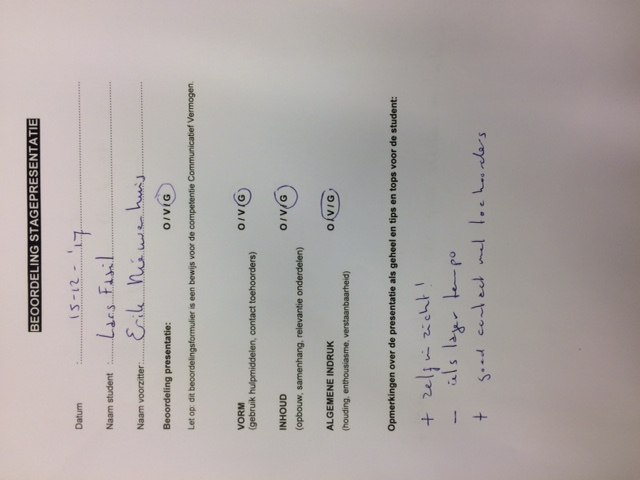 BEOORDELING STAGEPRESENTATIE
Datum : 15-12-'17
Naam student : Lars Fasil
Naam voorzitter: Erik Nieuwenhuis
Beoordeling presentatie: O/V/G
Let op: dit beoordelingsformulier is een bewijs voor de competentie Communicatief Vermogen.
VORM O/V/G
(gebruik hulpmiddelen, contact toehoorders)
INHOUD O/V/G
(opbouw, samenhang, relevantie onderdelen)
ALGEMENE INDRUK O/V/G
(houding, enthousiasme, verstaanbaarheid)
Opmerkingen over de presentatie als geheel en tips en tops voor de student:
+ zelfinzicht!
- iets lager tempo
+ goed contact met toehoorders